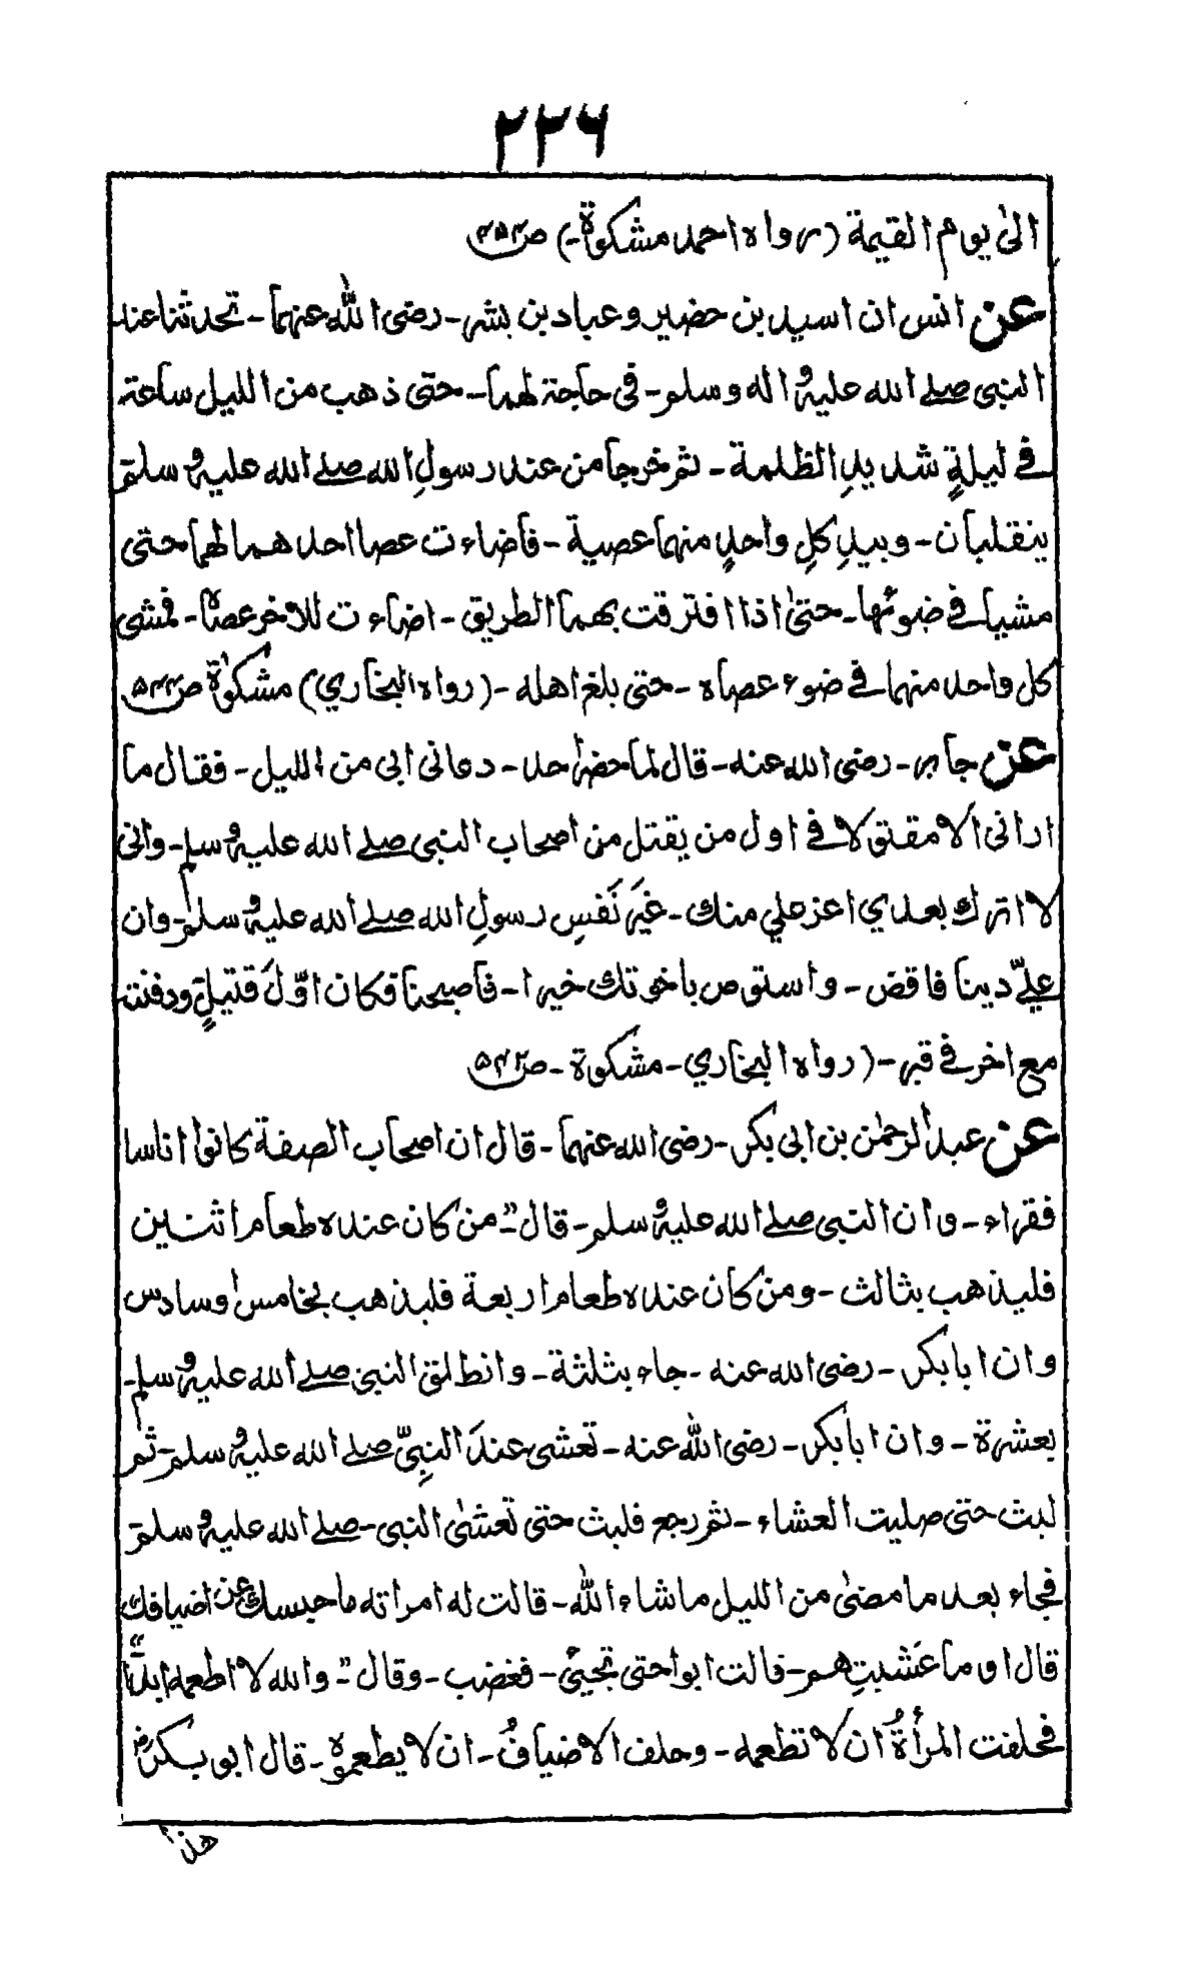 ۲۲۶
الیٰ یوم القیمة (رواہ احمد مشکوٰة-) ص۴۵۲
عن انس ان اسید بن حضیر و عباد بن بشر- رضی اللہ عنہما- تحدثنا عند
النبی صلے اللہ علیہ و الہ وسلم- فی حاجة لھما- حتی ذھب من اللیل ساعة
فے لیلةٍ شدیدِ الظلمة- ثم خرجا من عند رسولِ اللہ صلے اللہ علیہ و سلم
ینقلبان- و بیدِ کلِ واحدٍ منہما عصیة- فاضاءت عصا احدھما لھما حتی
مشیا فے ضوئھا- حتیٰ اذا افترقت بھما الطریق- اضاءت للاٰخر عصاہ- فمشی
کل واحد منہما فے ضوء عصاہ- حتی بلغ اھلہ- (رواہ البخاري) مشکوٰة ص۵۴۴
عن جابر- رضی اللہ عنہ- قال لما حضر احد- دعانی ابی من اللیل- فقال ما
ارانی الا مقتولا فے اول من یقتل من اصحاب النبی صلے اللہ علیہ و سلم- وانی
لا اترك بعدي اعز علي منك- غیرَ نَفسِ رسولِ اللہ صلے اللہ علیہ و سلم- وان
عليّ دینا فاقض- و استوص باخوتك خیرا- فاصبحنا فکان اوّلَ قتیلٍ ودفنتہ
مع اخر فے قبر- (رواہ البخاري- مشکوة- ص۵۴۲
عن عبد الرحمٰن بن ابی بکر- رضی اللہ عنہما- قال ان اصحاب الصفة کانوا اناسا
فقراء- وان النبی صلے اللہ علیہ و سلم- قال "- من کان عندہ طعام اثنین
فلیذھب بثالث- ومن کان عندہ طعام اربعة فلیذھب بخامس او سادس
وان ابا بکر- رضی اللہ عنہ- جاء بثلثة- وانطلق النبی صلے اللہ علیہ و سلم-
بعشرة- وان ابا بکر- رضی اللہ عنہ- تعشی عندَ النبِیّ صلے اللہ علیہ و سلم- ثم
لبث حتی صلیت العشاء- ثم رجع فلبث حتی تعشیٰ النبی- صلے اللہ علیہ و سلم
فجاء بعد ما مضیٰ من اللیل ما شاء اللہ- قالت لہ امراتہ ما حبسك عن اضیافك
قال او ما عَشیتِھم- قالت ابوا حتی تجیئی- فغضب- وقال "- واللہ لا اطعمہ ابدًا"
فحلفت المرأةُ ان لا تطعمہ- وحلف الاضیافُ- ان لا یطعموہ- قال ابو بکرؓ
ھذا